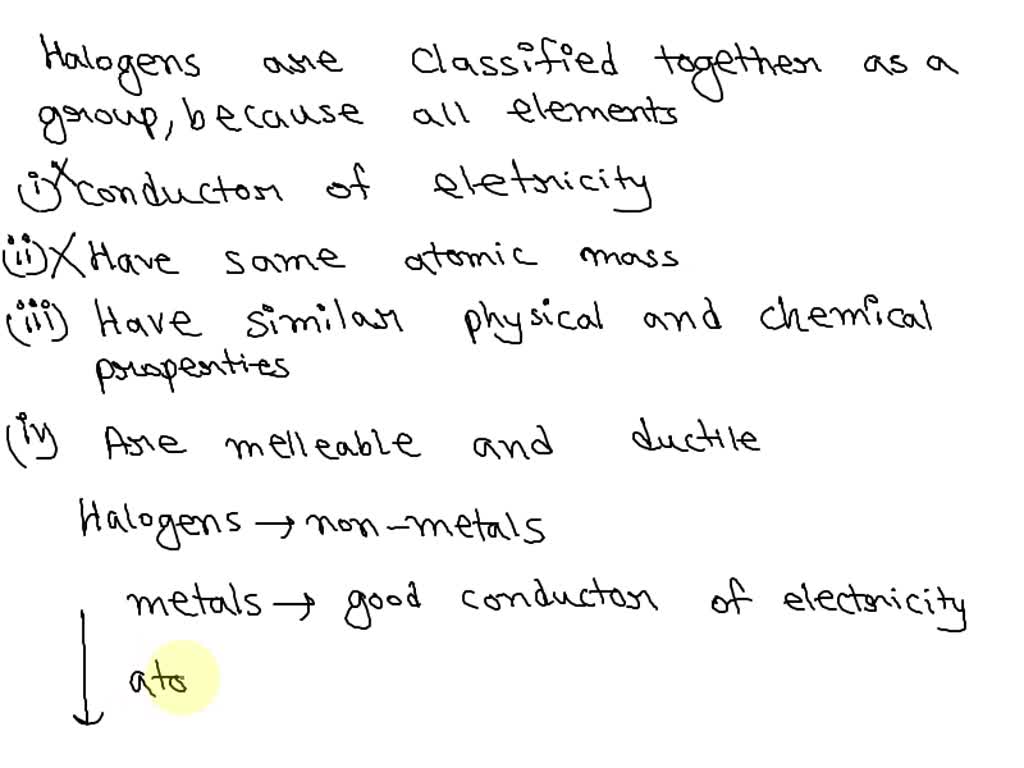 Halogens are classified together as a
group, because all elements
(i) X conductor of eletricity
(ii) X Have same atomic mass
(iii) Have similar physical and chemical
properties
(iv) Are melleable and ductile
Halogens → non-metals
metals → good conductor of electricity
ato